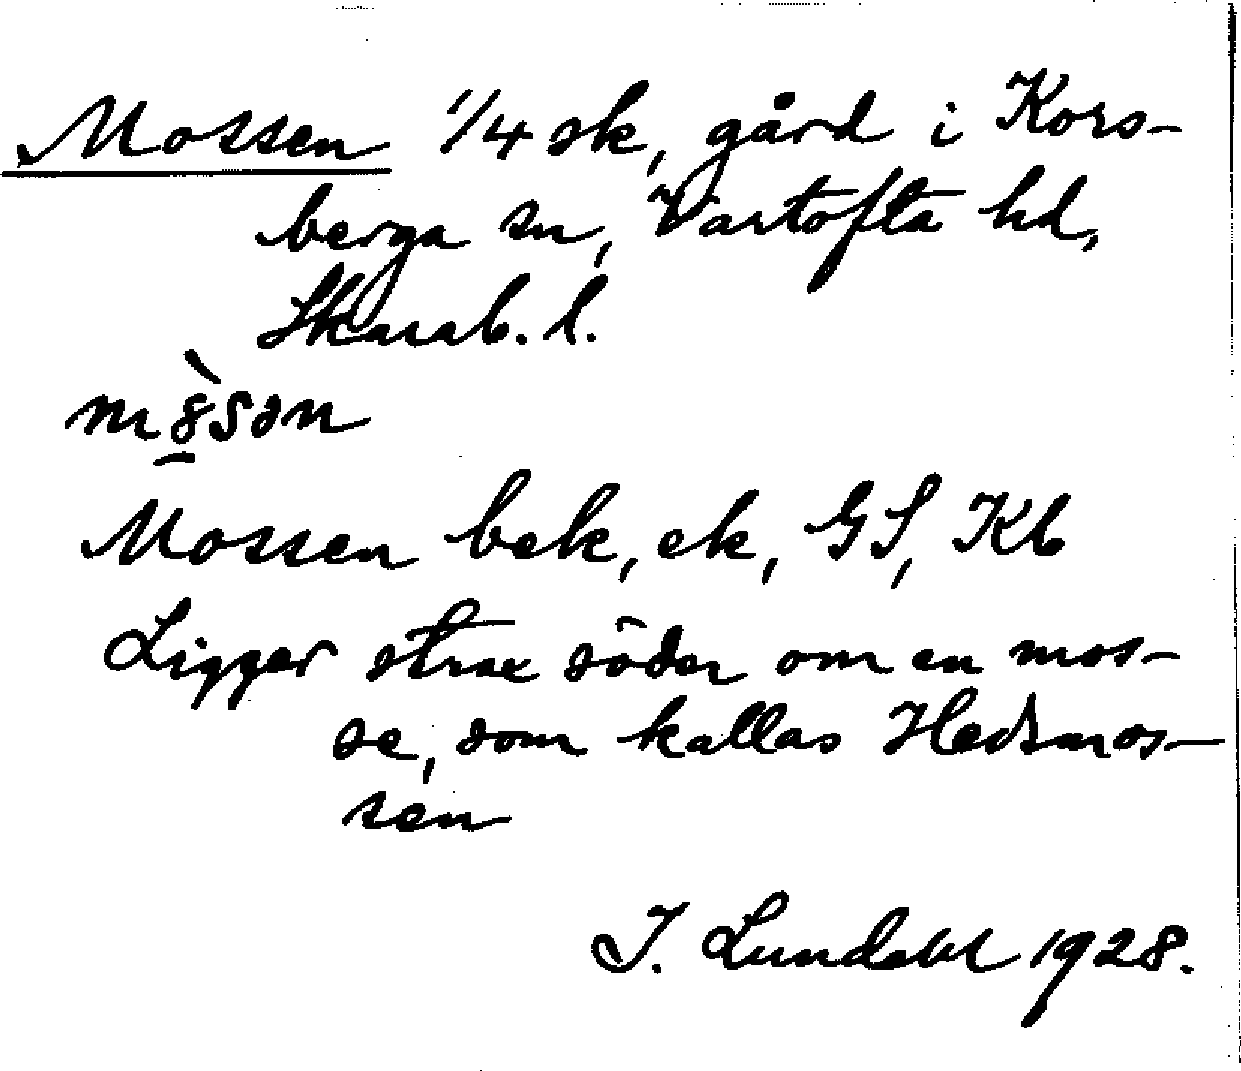 Mossen 1/4 sk, gård i Kors-
berga sn, Vartofta hd,
Skarab. l.
Mossen bek, ek, GS, Kb
Ligger strax söder om en mos-
se, som kallas Hedsmos-
sen
I. Lundahl 1928.